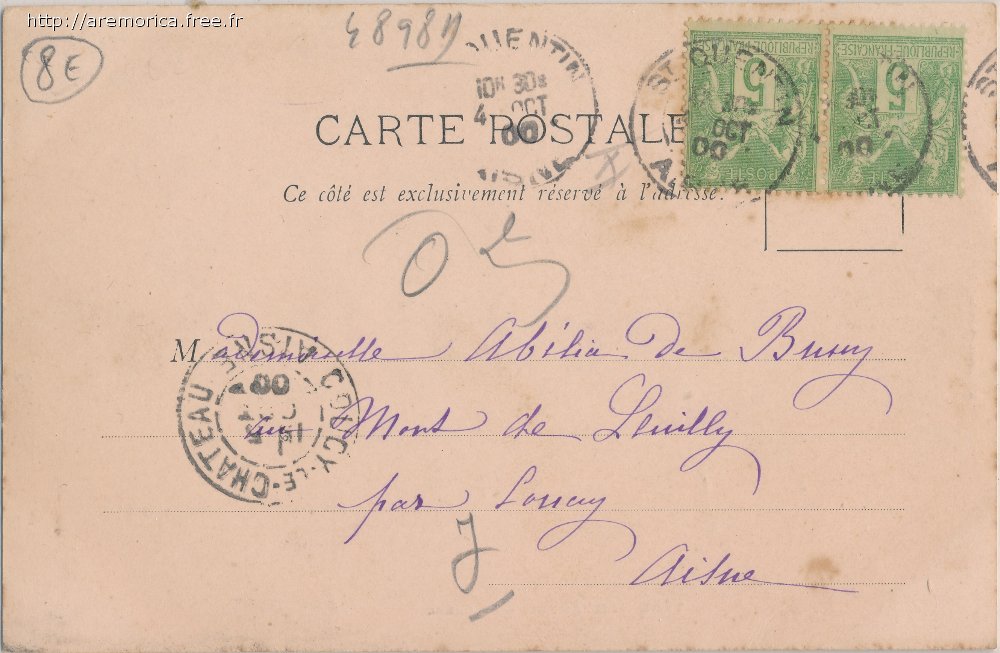 http://aremorica.free.fr
8E
4898D
ST QUENTIN
10H 30S
4 OCT
00
AISNE
ST QUENTIN
OCT
00
REPUBLIQUE FRANÇAISE
5
POSTE
REPUBLIQUE FRANÇAISE
5
POSTE
00
CARTE POSTALE
Ce côté est exclusivement réservé à l'adresse.
05
Mademoiselle Abilia de Bussy
au Mont de Leuilly
par Coucy
Aisne
COUCY-LE-CHATEAU AISNE
OCT
00